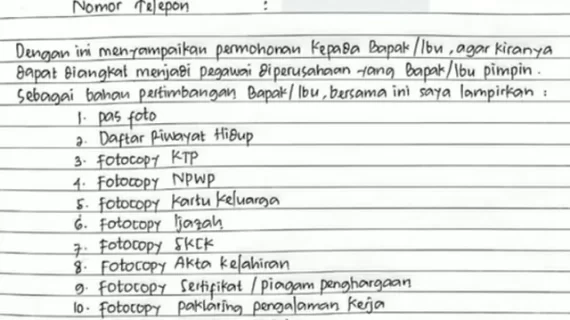 Nomor Telepon :
Dengan ini menyampaikan permohonan kepada Bapak/Ibu, agar kiranya
dapat diangkat menjadi pegawai diperusahaan yang Bapak/Ibu pimpin.
Sebagai bahan pertimbangan Bapak/Ibu, bersama ini saya lampirkan :
1. pas foto
2. Daftar Riwayat Hidup
3. Fotocopy KTP
4. Fotocopy NPWP
5. Fotocopy Kartu Keluarga
6. Fotocopy Ijazah
7. Fotocopy SKCK
8. Fotocopy Akta kelahiran
9. Fotocopy Sertifikat / piagam penghargaan
10. Fotocopy paklaring pengalaman kerja